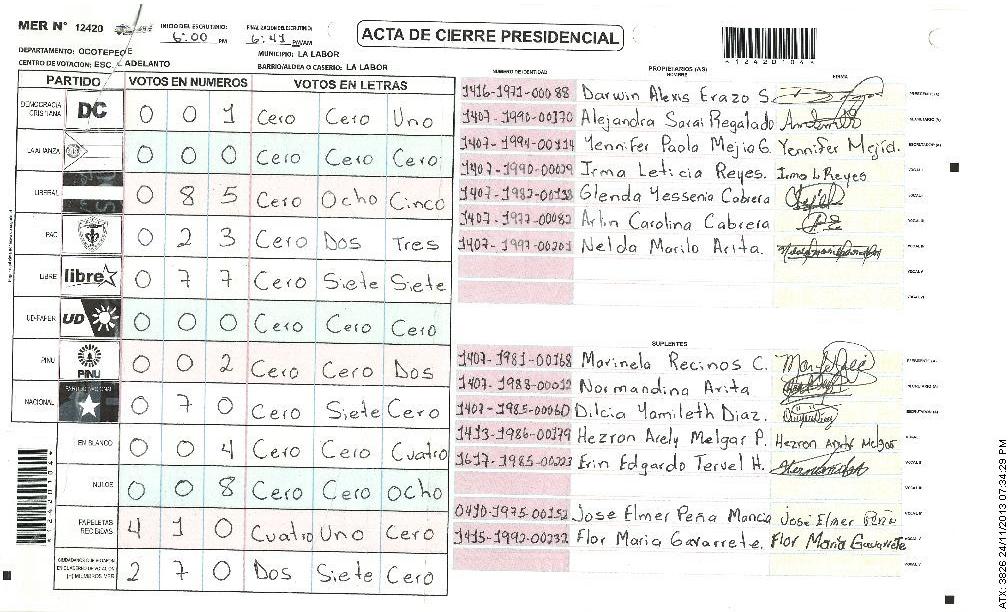 MER N° 12420
INICIO DEL ESCRUTINIO: 6:00 PM
FINALIZACION DEL ESCRUTINIO: 6:41 PM/AM
ACTA DE CIERRE PRESIDENCIAL
*12420104*
DEPARTAMENTO: OCOTEPEQUE
MUNICIPIO: LA LABOR
CENTRO DE VOTACION: ESC. ADELANTO
BARRIO/ALDEA O CASERIO: LA LABOR
PARTIDO VOTOS EN NUMEROS VOTOS EN LETRAS
DEMOCRACIA CRISTIANA DC 0 0 1 Cero Cero Uno
LA ALIANZA 0 0 0 Cero Cero Cero
LIBERAL 0 8 5 Cero Ocho Cinco
PAC 0 2 3 Cero Dos Tres
LIBRE libre 0 7 7 Cero Siete Siete
UD-FAPER UD 0 0 0 Cero Cero Cero
PINU PINU 0 0 2 Cero Cero Dos
NACIONAL PARTIDO NACIONAL 0 7 0 Cero Siete Cero
EN BLANCO 0 0 4 Cero Cero Cuatro
NULOS 0 0 8 Cero Cero Ocho
PAPELETAS RECIBIDAS 4 1 0 Cuatro Uno Cero
CIUDADANOS QUE VOTARON (+) MIEMBROS MER 2 7 0 Dos Siete Cero
NUMERO DE IDENTIDAD PROPIETARIOS (AS) NOMBRE FIRMA
1416-1971-00088 Darwin Alexis Erazo S. PRESIDENTE (A)
1407-1990-00170 Alejandra Sarai Regalado SECRETARIO (A)
1407-1994-00114 Yennifer Paola Mejia G. Yennifer Mejia. ESCRUTADOR (A)
1407-1990-00029 Irma Leticia Reyes. Irma L Reyes VOCAL I
1407-1982-00138 Glenda Yessenia Cabrera VOCAL II
1407-1977-00082 Arlin Carolina Cabrera VOCAL III
1407-1997-00201 Nelda Marilo Arita. VOCAL IV
VOCAL V
VOCAL VI
SUPLENTES
1407-1981-00168 Marinela Recinos C. PRESIDENTE (A)
1407-1988-00012 Normandina Arita
1407-1985-00060 Dilcia Yamileth Diaz. ESCRUTADOR (A)
1413-1986-00179 Hezron Arely Melgar P. Hezron Arely Melgar VOCAL I
1617-1985-00223 Erin Edgardo Tervel H. VOCAL II
0410-1975-00152 Jose Elmer Peña Mancia José Elmer Peña
1415-1992-00232 Flor Maria Gavarrete. Flor Maria Gavarrete
VOCAL V
*12420104*
ATX: 3826 24/11/2013 07:34:29 PM